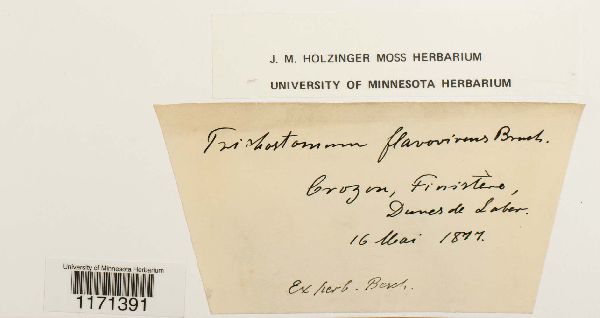 J. M. HOLZINGER MOSS HERBARIUM
UNIVERSITY OF MINNESOTA HERBARIUM
Trichostomum flavovirens Bruch.
Crozon, Finistère,
Dunes de Laber.
16 Mai 1877.
Ex herb. Besch.
University of Minnesota Herbarium
1171391